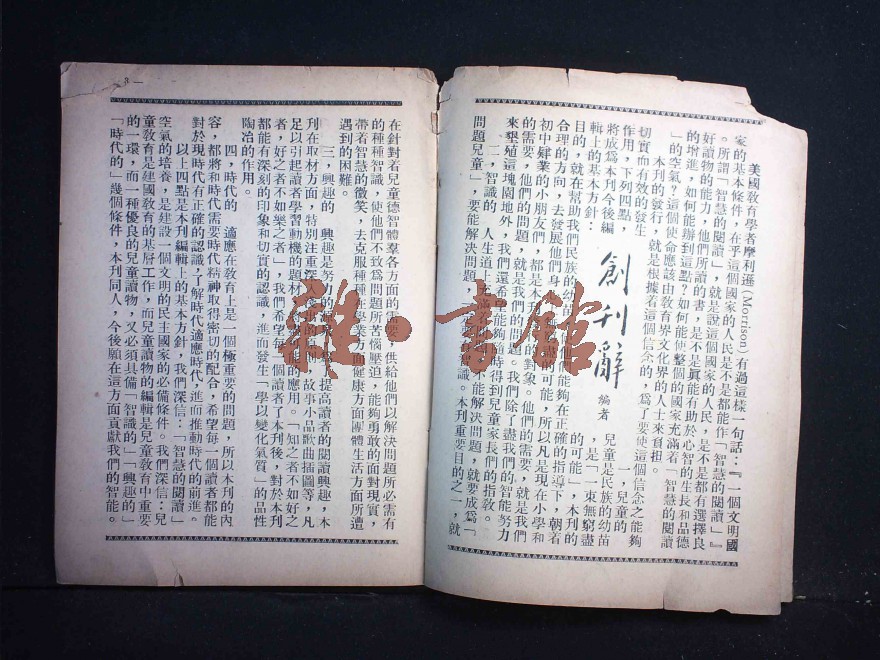 美國教育學者摩利遜(Morrison)有過這樣一句話：『一個文明國
家的基本條件，在乎這個國家的人民是不是都能作「智慧的閱讀」』
。所謂「智慧的閱讀」，就是說這個國家的人民，是不是都有選擇良
好讀物的能力，他們所讀的書，是不是眞能有助於心智的生長和品德
的增進，如何能辦到這點？如何能使整個的國家充滿着「智慧的閱讀
」的空氣？這個使命應該由教育界文化界的人士來負担。
本刊的發行，就是根據着這個信念的，爲了要使這個信念之能夠
切實而有效的發生
作用，下列四點，
將成爲本刊今後編
輯上的基本方針：
創刊辭
編者
一，兒童的
兒童是民族的幼苗
，是「一束無窮盡
的可能」，本刊的
目的，就在幫助我們民族的幼苗，他們能夠在正確的指導下，朝着
合理的方向，去發展他們身 的可能，所以凡是現在小學和
初中肄業的小朋友們，都是本刊的對象。他們的需要，就是我們
的需要，他們的問題，就是我們的問題。我們除了盡我們的智能努力
來墾殖這塊園地外，我們還希望能夠隨時得到兒童家長們的指教。
二，智識的 人生道上充滿 不能解決問題，就要成爲「
問題兒童」，要能解決問題， 智識。本刊重要目的之一，就
在針對着兒童德智體羣各方面的需要，供給他們以解決問題所必需有
的種種智識，使他們不致爲問題所苦惱壓迫，能夠勇敢的面對現實，
帶着智慧的微笑，去克服種種在學業方面健康方面團體生活方面所遭
遇到的困難。
三，興趣的 興趣是努力的 提高讀者的閱讀興趣，本
刊在取材方面，特別注重深入 故事小品歌曲插圖等，凡
足以引起讀者學習動機的題材 能的應用。「知之者不如好之
者，好之者不如樂之者」，我們希望每一個讀者了本刊後，對於本刊
都能有深刻的印象和切實的認識，進而發生「學以變化氣質」的品性
陶冶的作用。
四，時代的 適應在教育上是一個極重要的問題，所以本刊的內
容，都將和時代需要時代精神取得密切的配合，希望每一個讀者都能
對於現時代有正確的認識，了解時代適應時代，進而推動時代的前進。
以上四點是本刊編輯上的基本方針，我們深信：「智慧的閱讀」
空氣的培養，是建設一個文明的民主國家的必備條件。我們深信：兒
童教育是建國教育的基層工作，而兒童讀物的編輯是兒童教育中重要
的一環，而一種優良的兒童讀物，又必須具備「智識的」「興趣的」
「時代的」幾個條件，本刊同人，今後願在這方面貢獻我們的智能。
雜·書館